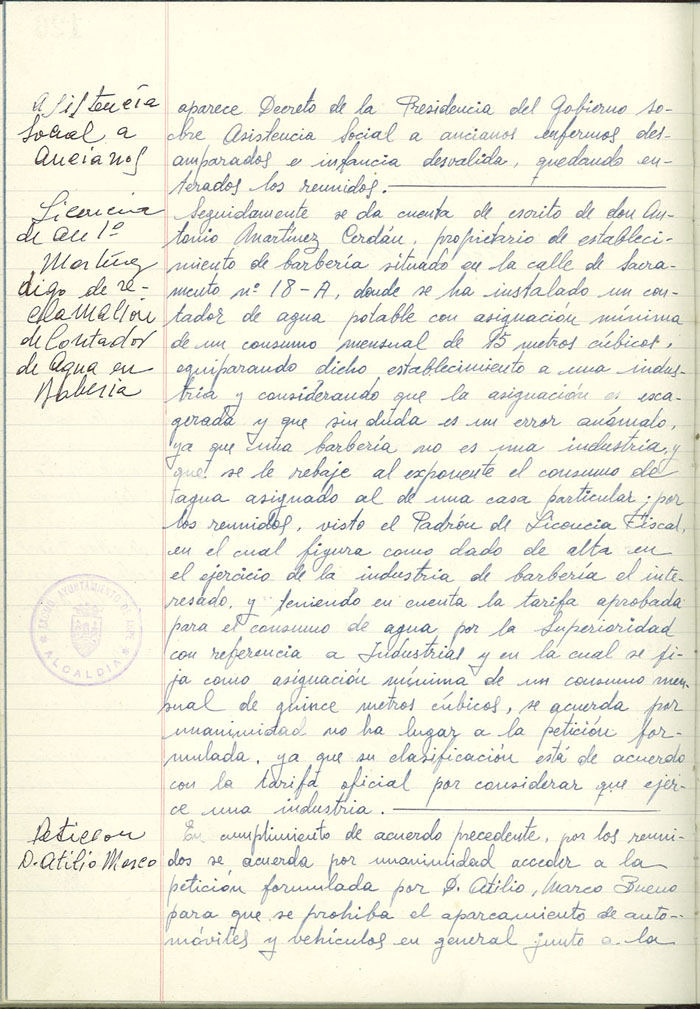 Asistencia
Social a
Ancianos
aparece Decreto de la Presidencia del Gobierno so-
bre Asistencia Social a ancianos enfermos des-
amparados e infancia desvalida, quedando en-
terados los reunidos.
Licencia
de
Martínez
digo de re-
clamación
de Contador
de Agua en
Baberia
Seguidamente se da cuenta de escrito de don An-
tonio Martínez Cerdán, propietario de estableci-
miento de barbería situado en la calle de Sacra-
mento nº 18-A, donde se ha instalado un con-
tador de agua potable con asignación mínima
de un consumo mensual de 15 metros cúbicos,
equiparando dicho establecimiento a una indus-
tria y considerando que la asignación es exa-
gerada y que sin duda es un error anómalo,
ya que una barbería no es una industria, y
que se le rebaje al exponente el consumo de
agua asignado al de una casa particular; por
los reunidos, visto el Padrón de Licencia Fiscal,
en el cual figura como dado de alta en
el ejercicio de la industria de barbería el inte-
resado, y teniendo en cuenta la tarifa aprobada
para el consumo de agua por la Superioridad
con referencia a Industrias y en la cual se fi-
ja como asignación mínima de un consumo men-
sual de quince metros cúbicos, se acuerda por
unanimidad no ha lugar a la petición for-
mulada, ya que su clasificación está de acuerdo
con la tarifa oficial por considerar que ejer-
ce una industria.
AYUNTAMIENTO DE ASPE
ALCALDIA
Peticion
D. Atilio Marco
En cumplimiento de acuerdo precedente, por los reuni-
dos se acuerda por unanimidad acceder a la
petición formulada por D. Atilio Marco Bueno
para que se prohiba el aparcamiento de auto-
móviles y vehículos en general junto a la